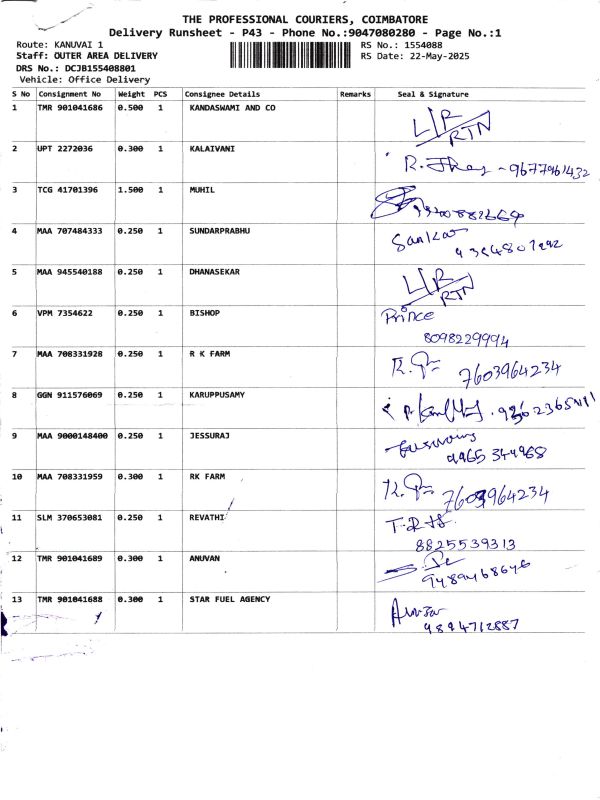 THE PROFESSIONAL COURIERS, COIMBATORE
Delivery Runsheet - P43 - Phone No.:9047080280 - Page No.:1
Route: KANUVAI 1 RS No.: 1554088
Staff: OUTER AREA DELIVERY RS Date: 22-May-2025
DRS No.: DCJB155408801
Vehicle: Office Delivery
S No Consignment No Weight PCS Consignee Details Remarks Seal & Signature
1 TMR 901041686 0.500 1 KANDASWAMI AND CO
RTN
2 UPT 2272036 0.300 1 KALAIVANI
R. - 9677961432
3 TCG 41701396 1.500 1 MUHIL
4 MAA 707484333 0.250 1 SUNDARPRABHU
Sankar
5 MAA 945540188 0.250 1 DHANASEKAR
RTN
6 VPM 7354622 0.250 1 BISHOP
Prince
8098229994
7 MAA 708331928 0.250 1 R K FARM
7603964234
8 GGN 911576069 0.250 1 KARUPPUSAMY
9 MAA 9000148400 0.250 1 JESSURAJ
9965 344968
10 MAA 708331959 0.300 1 RK FARM
7603964234
11 SLM 370653081 0.250 1 REVATHI
8825539313
12 TMR 901041689 0.300 1 ANUVAN
9489468646
13 TMR 901041688 0.300 1 STAR FUEL AGENCY
9894712887